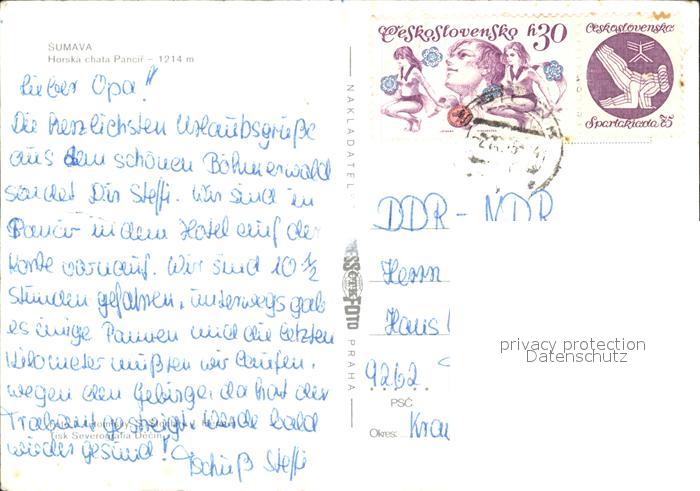 ŠUMAVA
Horská chata Pancíř - 1214 m
Lieber Opa!
Die herzlichsten Urlaubsgrüße
aus dem schönen Böhmerwald
sendet Dir Steffi. Wir sind in
Pancir in dem Hotel auf der
Karte vornauf. Wir sind 10 1/2
Stunden gefahren, unterwegs gab
es einige Pannen und die letzten
Kilometer mußten wir laufen,
wegen den Gebirge, da hat der
Trabant gestreigt. Werde bald
wieder gesund!
Tschüß Steffi
Tisk Severografia Děčín
NAKLADATEL
PRESSFOTO
PRAHA
Československo h30
Československo
Spartakiáda 75
DDR - NDR
Herrn
Hans
9262
PSČ
Okres:
privacy protection
Datenschutz